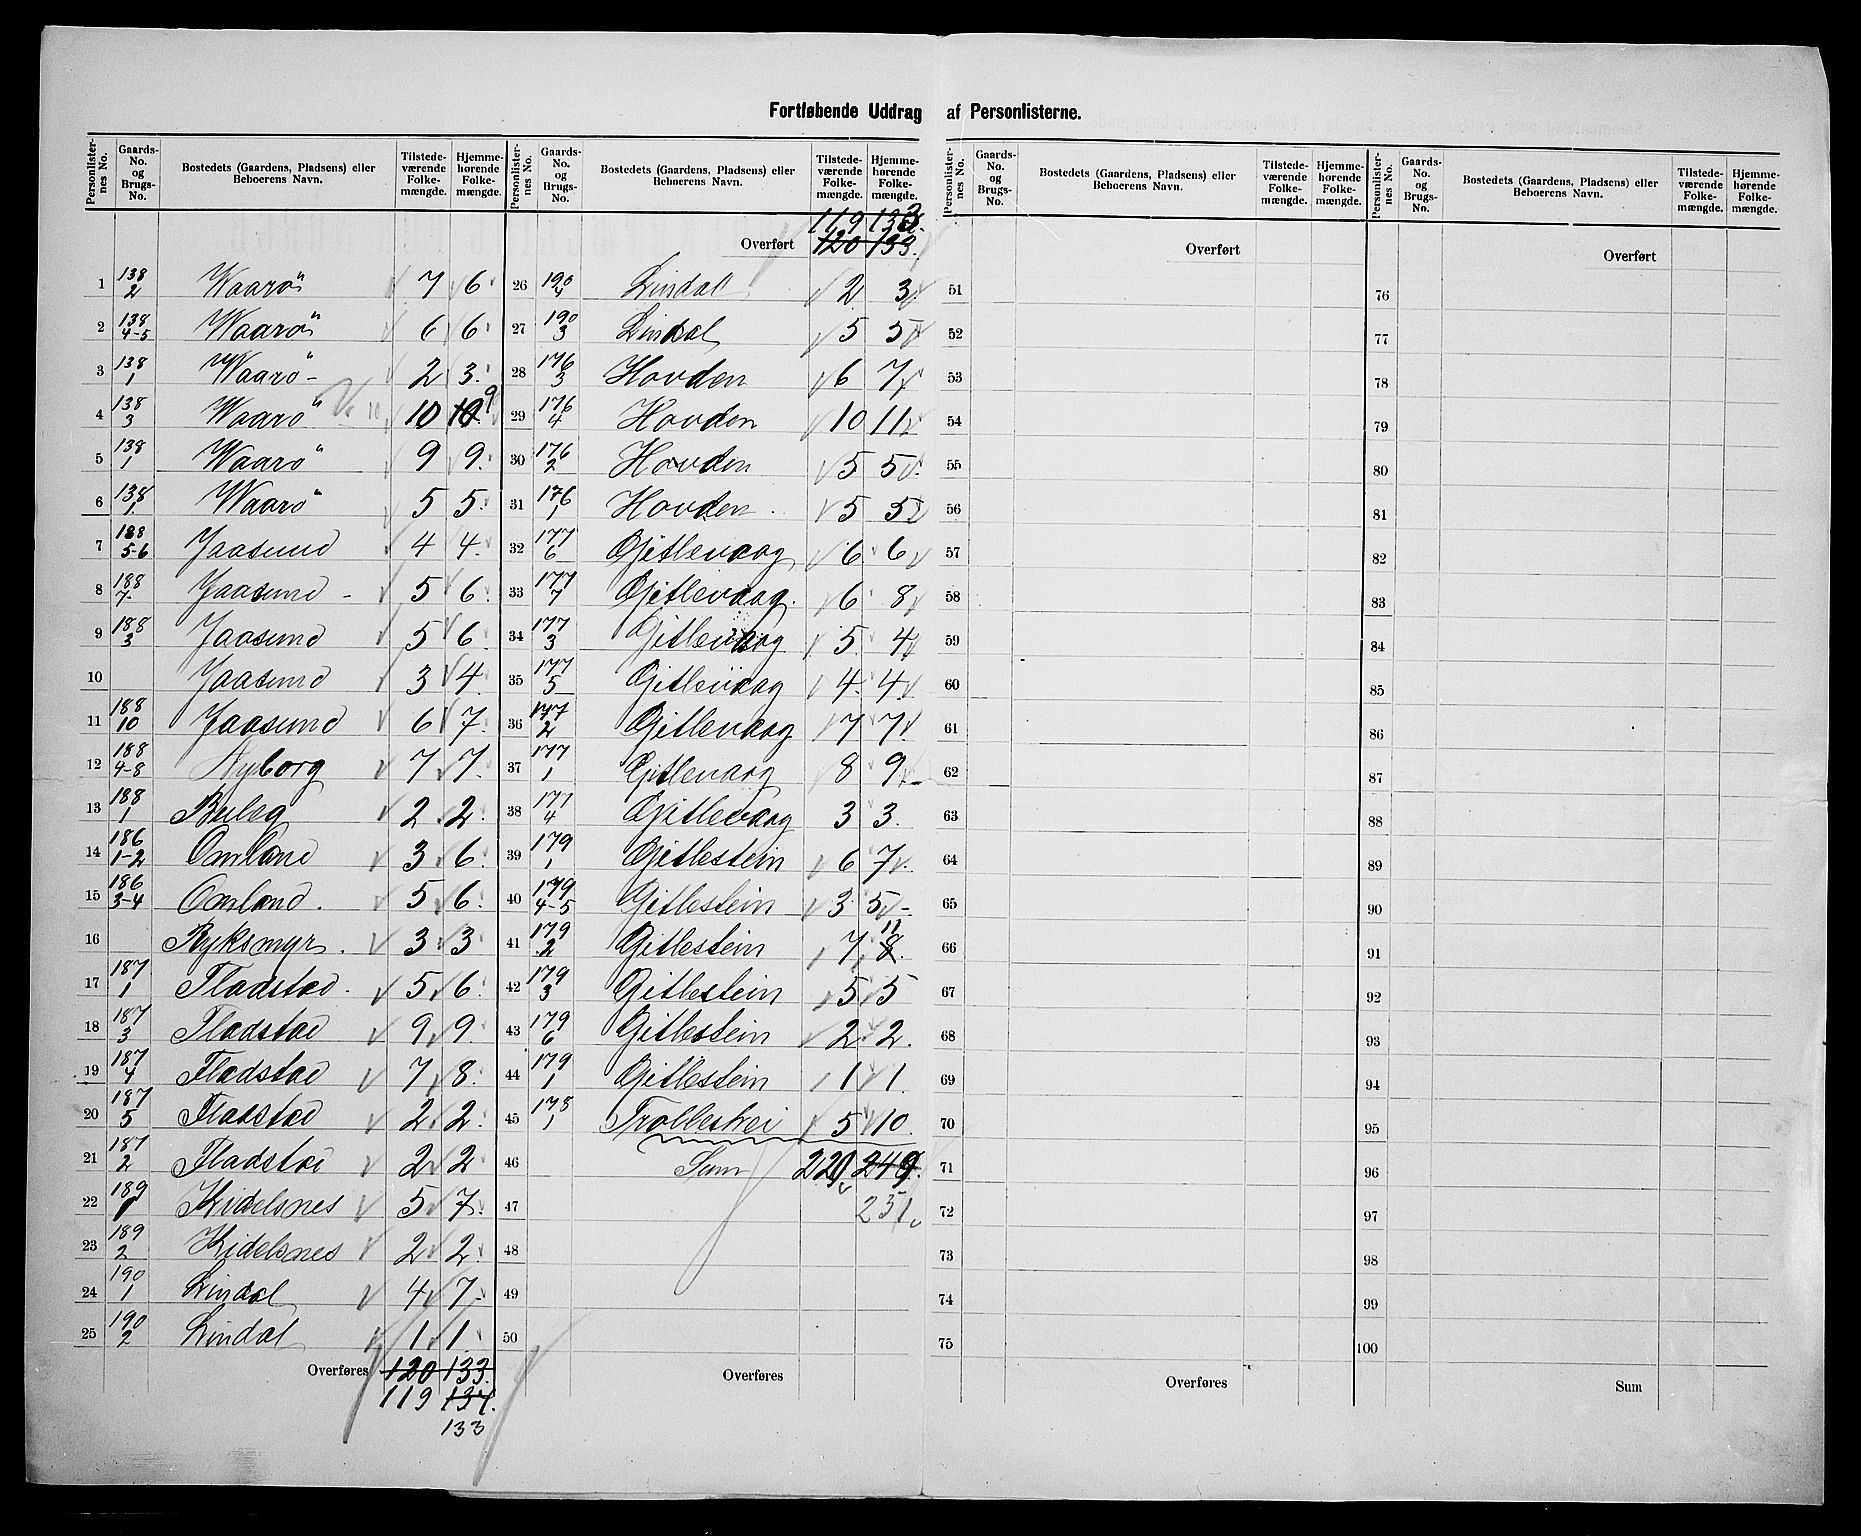 Fortløbende Uddrag af Personlisterne.
Personlister-nes No. | Gaards-No. og Brugs-No. | Bostedets (Gaardens, Pladsens) eller Beboerens Navn. | Tilstede-værende Folke-mængde. | Hjemme-hørende Folke-mængde.
1 138/2 Waarø 7 6
2 138/4-5 Waarø 6 6
3 138/1 Waarø - 2 3.
4 138/3 Waarø 10 10 9
5 138/1 Waarø 9 9.
6 138/1 Waarø 5 5.
7 188/5-6 Jaasund 4 4.
8 188/7- Jaasund - 5 6.
9 188/3 Jaasund 5 6.
10 Jaasund 3 4.
11 188/10 Jaasund 6 7.
12 188/4-8 Nyborg 7 7.
13 188/1 Buleg 2 2.
14 186/1-2 Omland 3 6.
15 186/3-4 Omland. 5 6.
16 Ryksmyr. 3 3
17 187/1 Fladstad. 5 6.
18 187/3 Fladstad 9 9.
19 187/4 Fladstad 7 8.
20 187/5 Fladstad 2 2.
21 187/2 Fladstad 2 2
22 189/1 Kidelsnes 5 7.
23 189/2 Kidelsnes 2 2.
24 190/1 Lindal 4 7-
25 190/2 Lindal 1 1.
Overføres 120 133.
119 134.
133
Personlister-nes No. | Gaards-No. og Brugs-No. | Bostedets (Gaardens, Pladsens) eller Beboerens Navn. | Tilstede-værende Folke-mængde. | Hjemme-hørende Folke-mængde.
119 133.
Overført 120 133.
26 190/4 Lindal 2 3
27 190/3 Lindal 5 5
28 176/3 Hovden 6 7
29 176/4 Hovden 10 11
30 176/2 Hovden 5 5
31 176/1 Hovden. 5 5
32 177/6 Gitlevaag 6 6
33 177/7 Gitlevaag. 6 8
34 177/3 Gitlevaag 5. 4
35 177/5 Gitlevaag 4. 4
36 177/2 Gitlevaag 7 7.
37 177/1 Gitlevaag 8 9.
38 177/4 Gitlevaag 3 3.
39 179/1 Gitlestein 6 7.
40 179/4-5 Gitlestein 3 5 -
41 179/2 Gitlestein 7 8. 11
42 179/3 Gitlestein 5 5
43 179/6 Gitlestein 2 2.
44 179/1 Gitlestein 1 1.
45 178/1 Trolleskei 5 10.
46 Sum 221 249.
47 251
48
49
50
Overføres
Personlister-nes No. | Gaards-No. og Brugs-No. | Bostedets (Gaardens, Pladsens) eller Beboerens Navn. | Tilstede-værende Folke-mængde. | Hjemme-hørende Folke-mængde.
Overført
51
52
53
54
55
56
57
58
59
60
61
62
63
64
65
66
67
68
69
70
71
72
73
74
75
Overføres
Personlister-nes No. | Gaards-No. og Brugs-No. | Bostedets (Gaardens, Pladsens) eller Beboerens Navn. | Tilstede-værende Folke-mængde. | Hjemme-hørende Folke-mængde.
Overført
76
77
78
79
80
81
82
83
84
85
86
87
88
89
90
91
92
93
94
95
96
97
98
99
100
Sum